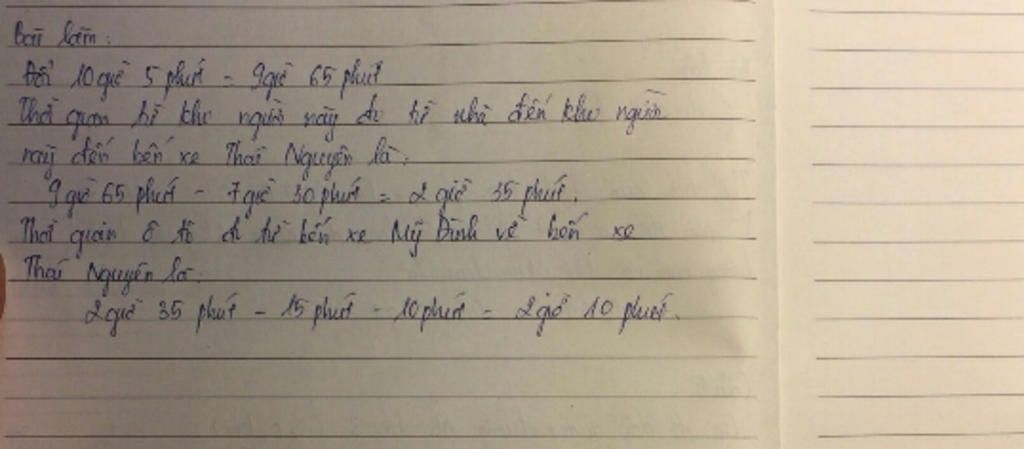 Bài làm:
Đổi 10 giờ 5 phút = 9 giờ 65 phút
Thời gian từ khi người này đi từ nhà đến khi người
này đến bến xe Thái Nguyên là:
9 giờ 65 phút - 7 giờ 30 phút = 2 giờ 35 phút.
Thời gian ô tô đi từ bến xe Mỹ Đình về bến xe
Thái Nguyên là:
2 giờ 35 phút - 15 phút - 10 phút = 2 giờ 10 phút.